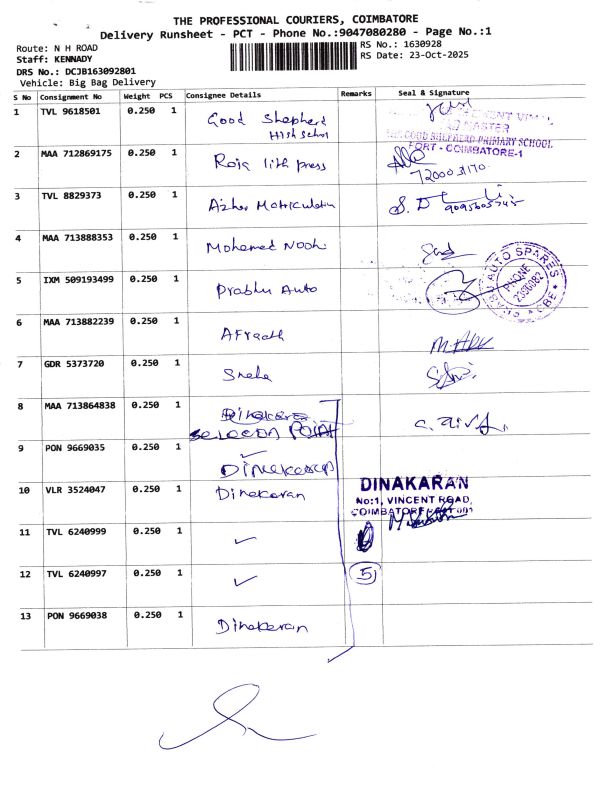 THE PROFESSIONAL COURIERS, COIMBATORE
Delivery Runsheet - PCT - Phone No.:9047080280 - Page No.:1
Route: N H ROAD
RS No.: 1630928
Staff: KENNADY
RS Date: 23-Oct-2025
DRS No.: DCJB163092801
Vehicle: Big Bag Delivery
S No Consignment No Weight PCS Consignee Details Remarks Seal & Signature
1 TVL 9618501 0.250 1 Good Shepherd
High School
HEAD MASTER
GOOD SHEPHERD PRIMARY SCHOOL
FORT - COIMBATORE-1
2 MAA 712869175 0.250 1 Roja lith press
3 TVL 8829373 0.250 1 Azher Matriculation
4 MAA 713888353 0.250 1 Mohamed Nooh
5 IXM 509193499 0.250 1 Prabhu Auto
AUTO SPARES
PHONE
CBE
6 MAA 713882239 0.250 1
7 GDR 5373720 0.250 1 Sneha
8 MAA 713864838 0.250 1 Dinakaran
POINT
9 PON 9669035 0.250 1 Dinakaran
10 VLR 3524047 0.250 1 Dinakaran
DINAKARAN
No:1, VINCENT ROAD,
COIMBATORE
11 TVL 6240999 0.250 1 ✓
12 TVL 6240997 0.250 1 ✓ 5
13 PON 9669038 0.250 1 Dinakaran